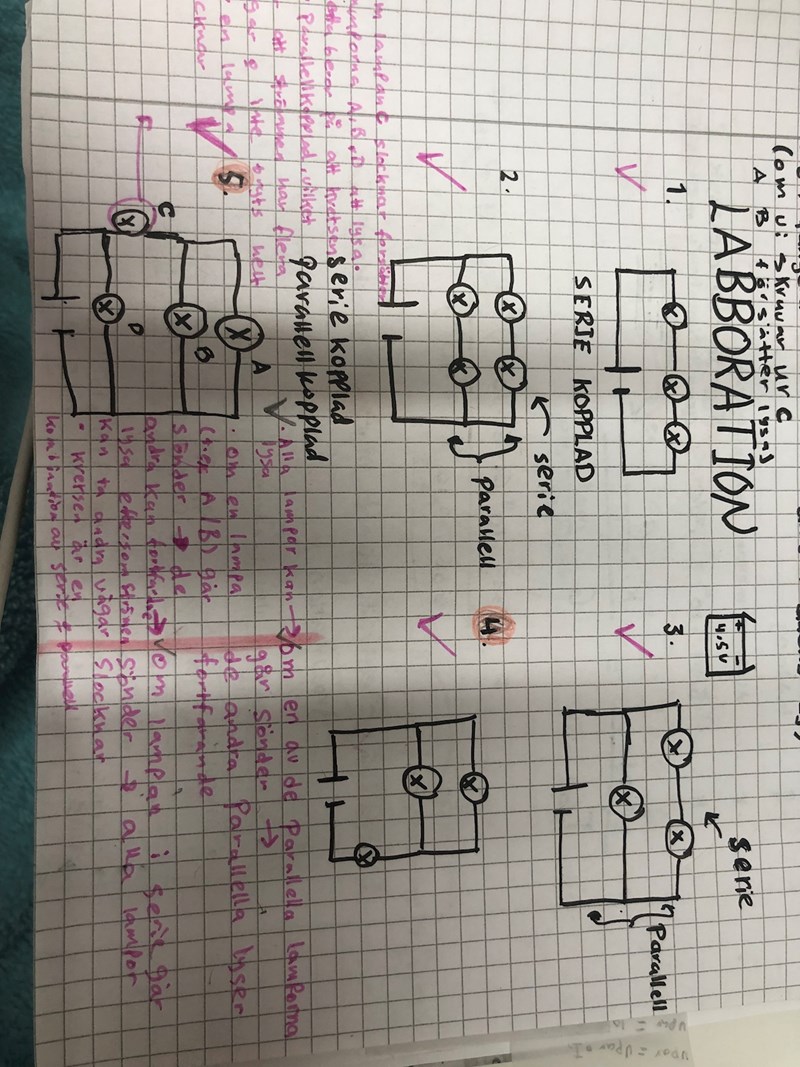 (om vi skruvar ur C
A B försätter lysa)
LABBORATION
+ -
4.5V
1.
X X X
SERIE KOPPLAD
2.
X X
X X
serie
parallell
serie kopplad
parallell kopplad
3.
X X
X
serie
Parallell
4.
X
X
X
5.
A
B
C
D
X
X
X
X
lampan C slocknar
lamporna A, B, D att lysa.
beror på att kretsen
Parallellkopplad, vilket
att strömmen har flera
inte bruts helt
en lampa
• Alla lampor kan
lysa
• om en lampa
(t.ex A/B) går
sönder → de
andra kan fortfarande
lysa eftersom strömen
kan ta andra vägar
• kretsen är en
kombination av serie + parallell
→ om en av de Parallella lamporna
går sönder →
de andra Parallella lyser
fortfarande
→ om lampan i serie går
sönder → alla lampor
slocknar